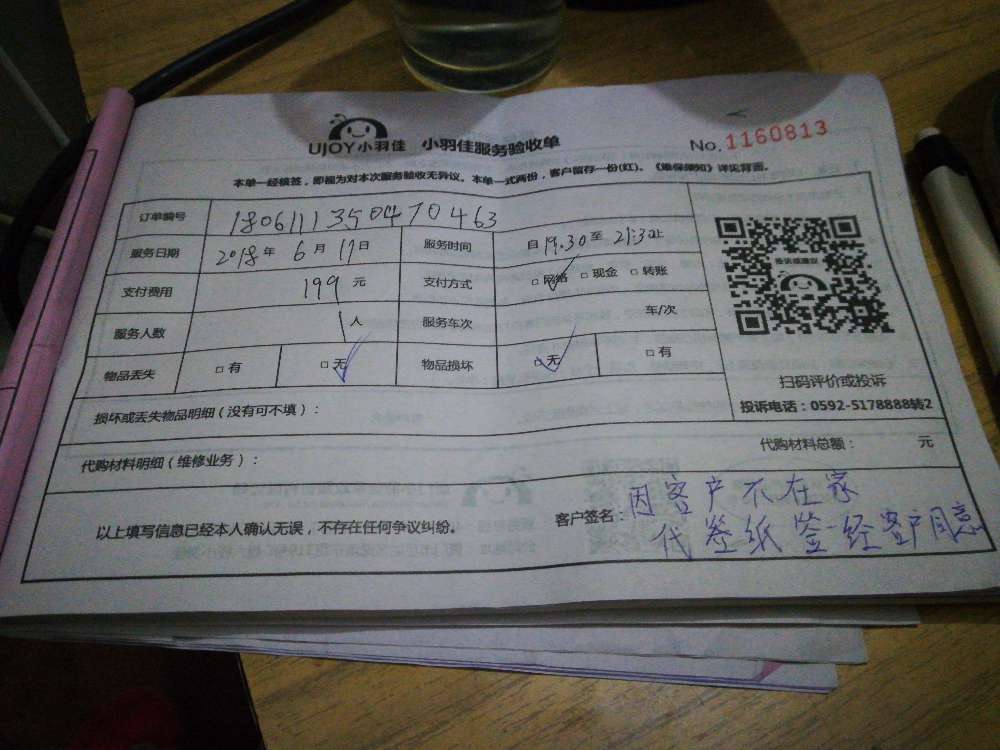 UJOY小羽佳 小羽佳服务验收单
No.1160813
本单一经核签，即视为对本次服务验收无异议。本单一式两份，客户留存一份(红)。《维保须知》详见背面。
订单编号 1806111350470463
服务日期 2018年 6月 17日 服务时间 自 19:30 至 21:30止
支付费用 199 元 支付方式 □网络 □现金 □转账
服务人数 1人 服务车次 车/次
物品丢失 □有 □无 物品损坏 □无 □有
投诉或建议
扫码评价或投诉
投诉电话：0592-5178888转2
损坏或丢失物品明细（没有可不填）：
代购材料明细（维修业务）： 代购材料总额： 元
以上填写信息已经本人确认无误，不存在任何争议纠纷。 客户签名：因客户不在家
代签纸签经客户同意